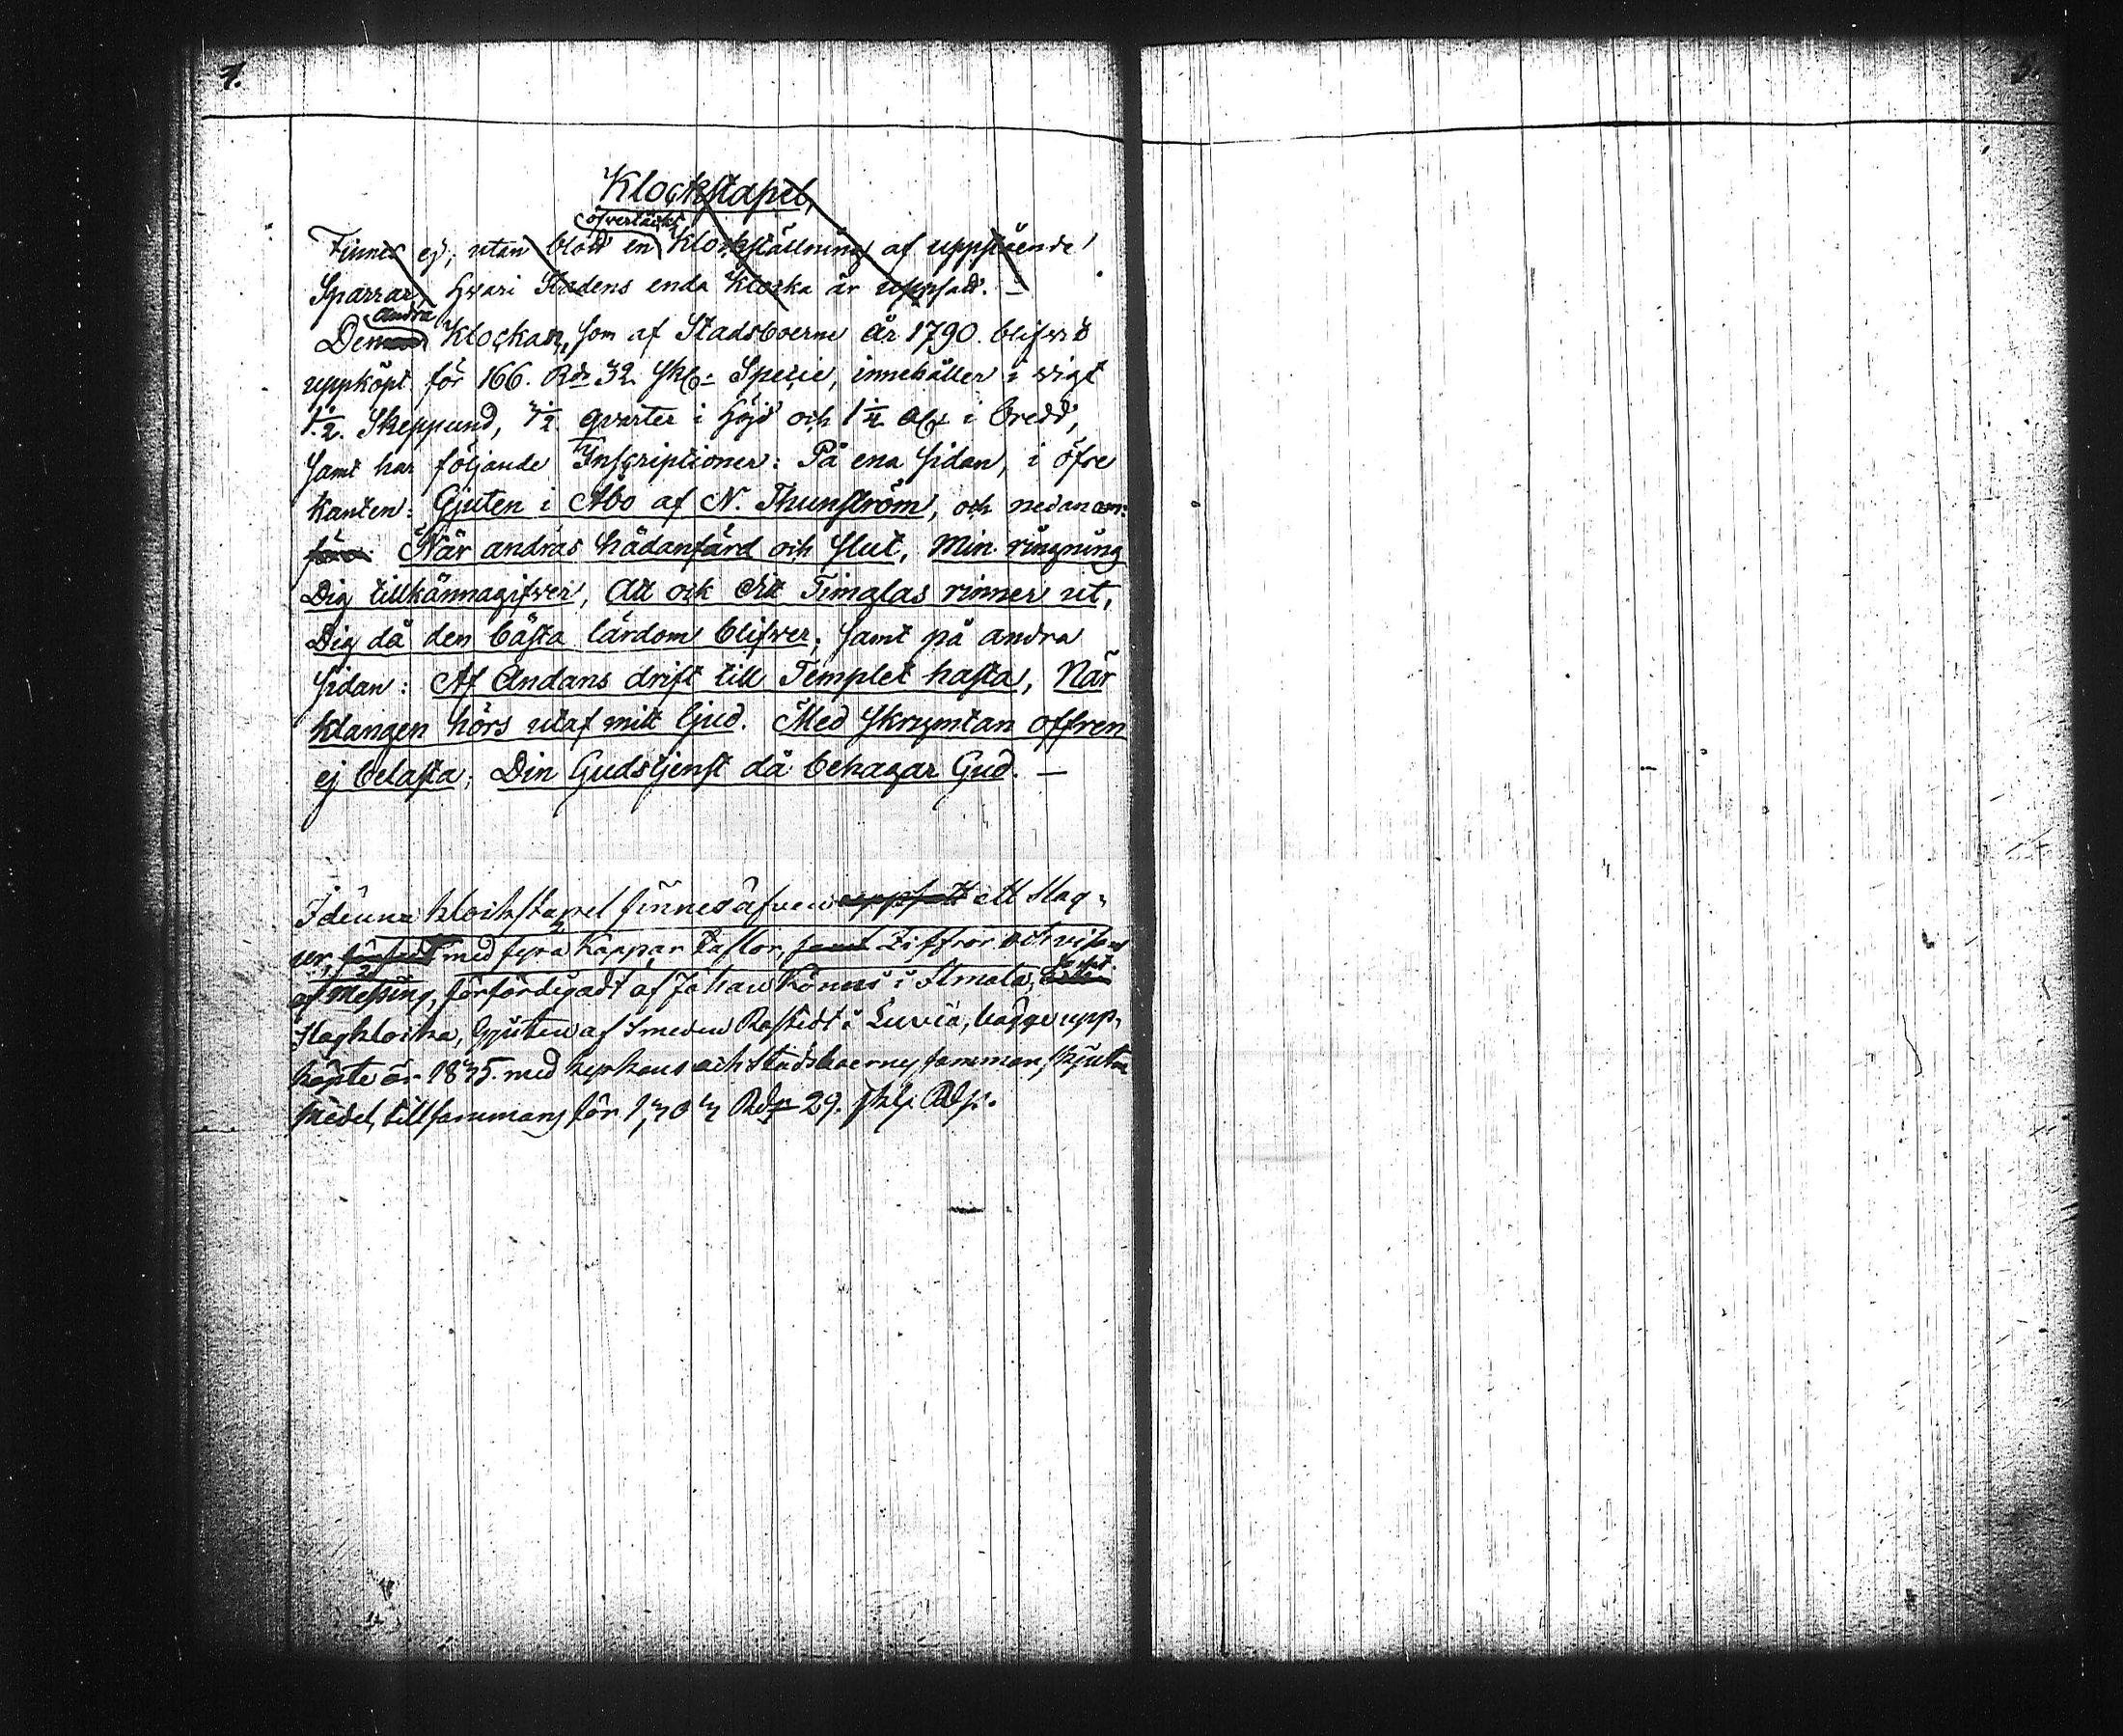 1.
Klockstapel,
öfvertäckt
Finnes ej, utan blott en Klockställning af uppstående
Sparrar, hwari Stadens enda Klocka är uppsatt. —
andra
Den Klockan, som af Stadsboerne år 1790. blifvit
uppköpt för 166. Rdr 32 sk: Specie, innehåller i wigt
1.½. Skeppund, 3½ qvarter i höjd och 1¼ Aln i bredd,
samt har följande Inscriptioner: På ena sidan, i öfre
kanten: Gjuten i Åbo af N. Thunström, och nedanom:
När andras hädanfärd och slut, Min ringning
Dig tillkännagifver, Att ock ditt Timglas rinner ut,
Dig då den bästa lärdom blifver; samt på andra
sidan: Af Andans drift till Templet hasta, När
klangen hörs utaf mitt ljud. Med skrymtan offren
ej belasta; Din Gudstjenst då behagar Gud. —
I denna klockstapel finnes äfven uppsatt ett Slag-
ur, med fyra Koppar taflor, samt Ziffror och visare
af Messing, förfördigadt af Johan Könni i Ilmola,
Slagklocka, gjuten af Smeden Rostedt i Luvia, bägge upp-
köpte år 1845. med kyrkans och Stadsboernes sammanskjutna
medel, tillsammans för Rdr 29. sk.